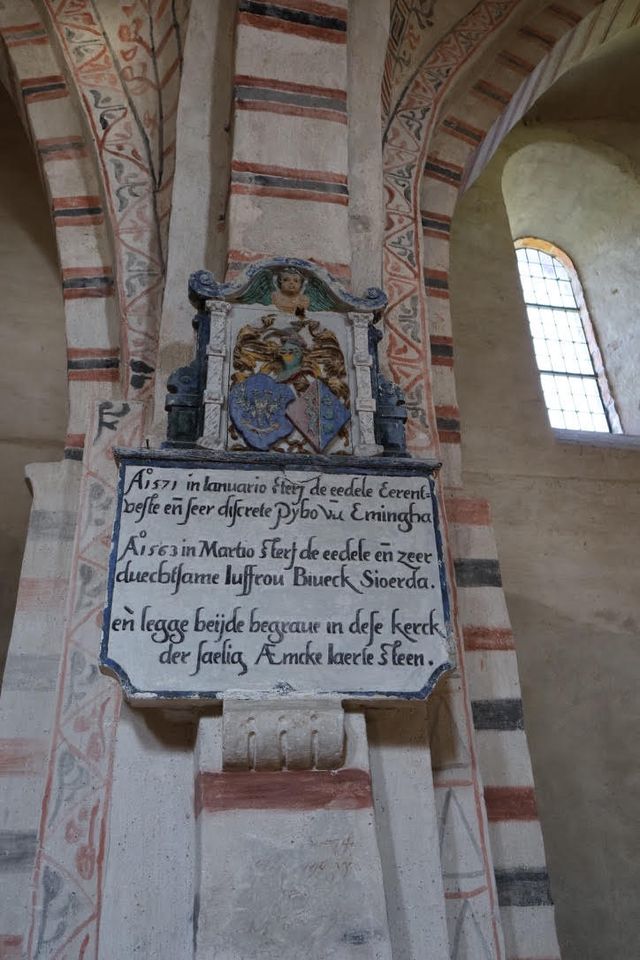 Ao 1571 in Ianuario sterf de eedele Eerent-
veste en̄ seer discrete Pybo vā Emingha
Ao 1563 in Martio sterf de eedele en̄ zeer
duechtsame Iuffrou Biueck Sioerda.
en̄ legge beijde begraue in dese kerck
der saelig Æmcke Iaerle steen.